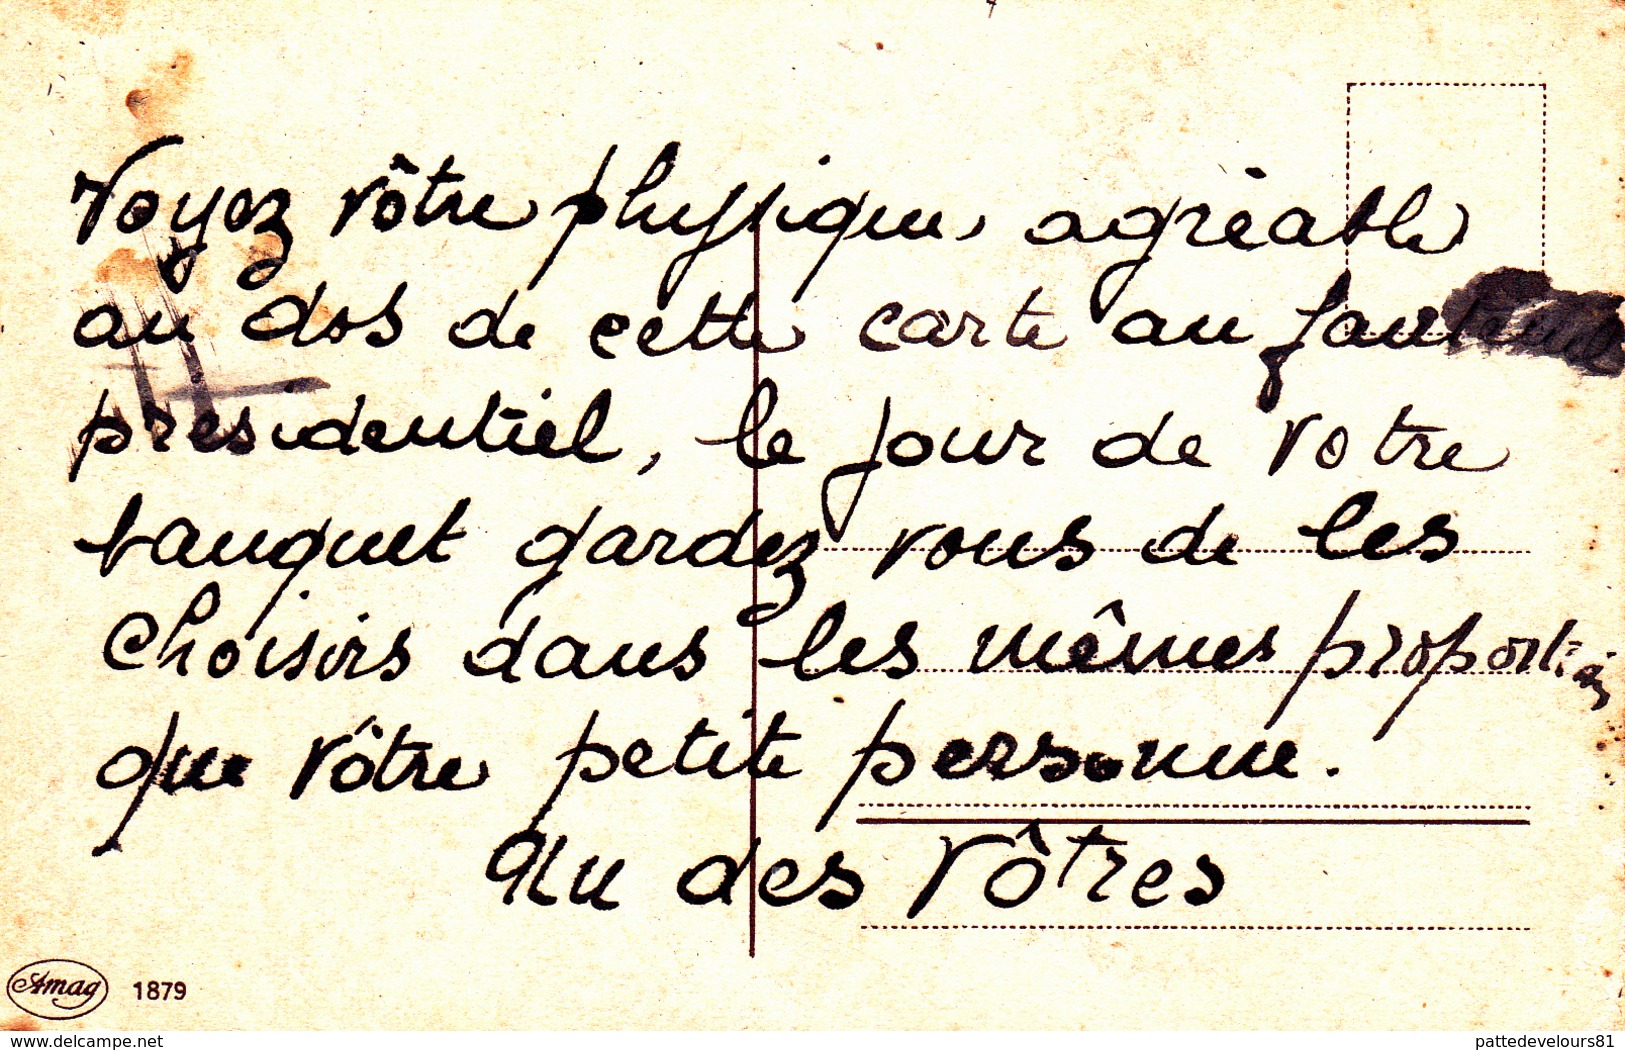 Voyez vôtre physique, agrèable
au dos de cette carte au fauteuil
presidentiel, le jour de votre
banquet gardez vous de les
choisirs dans les mêmes proportion
que vôtre petite personne.
Un des vôtres
Amag 1879
www.delcampe.net
pattedevelours81